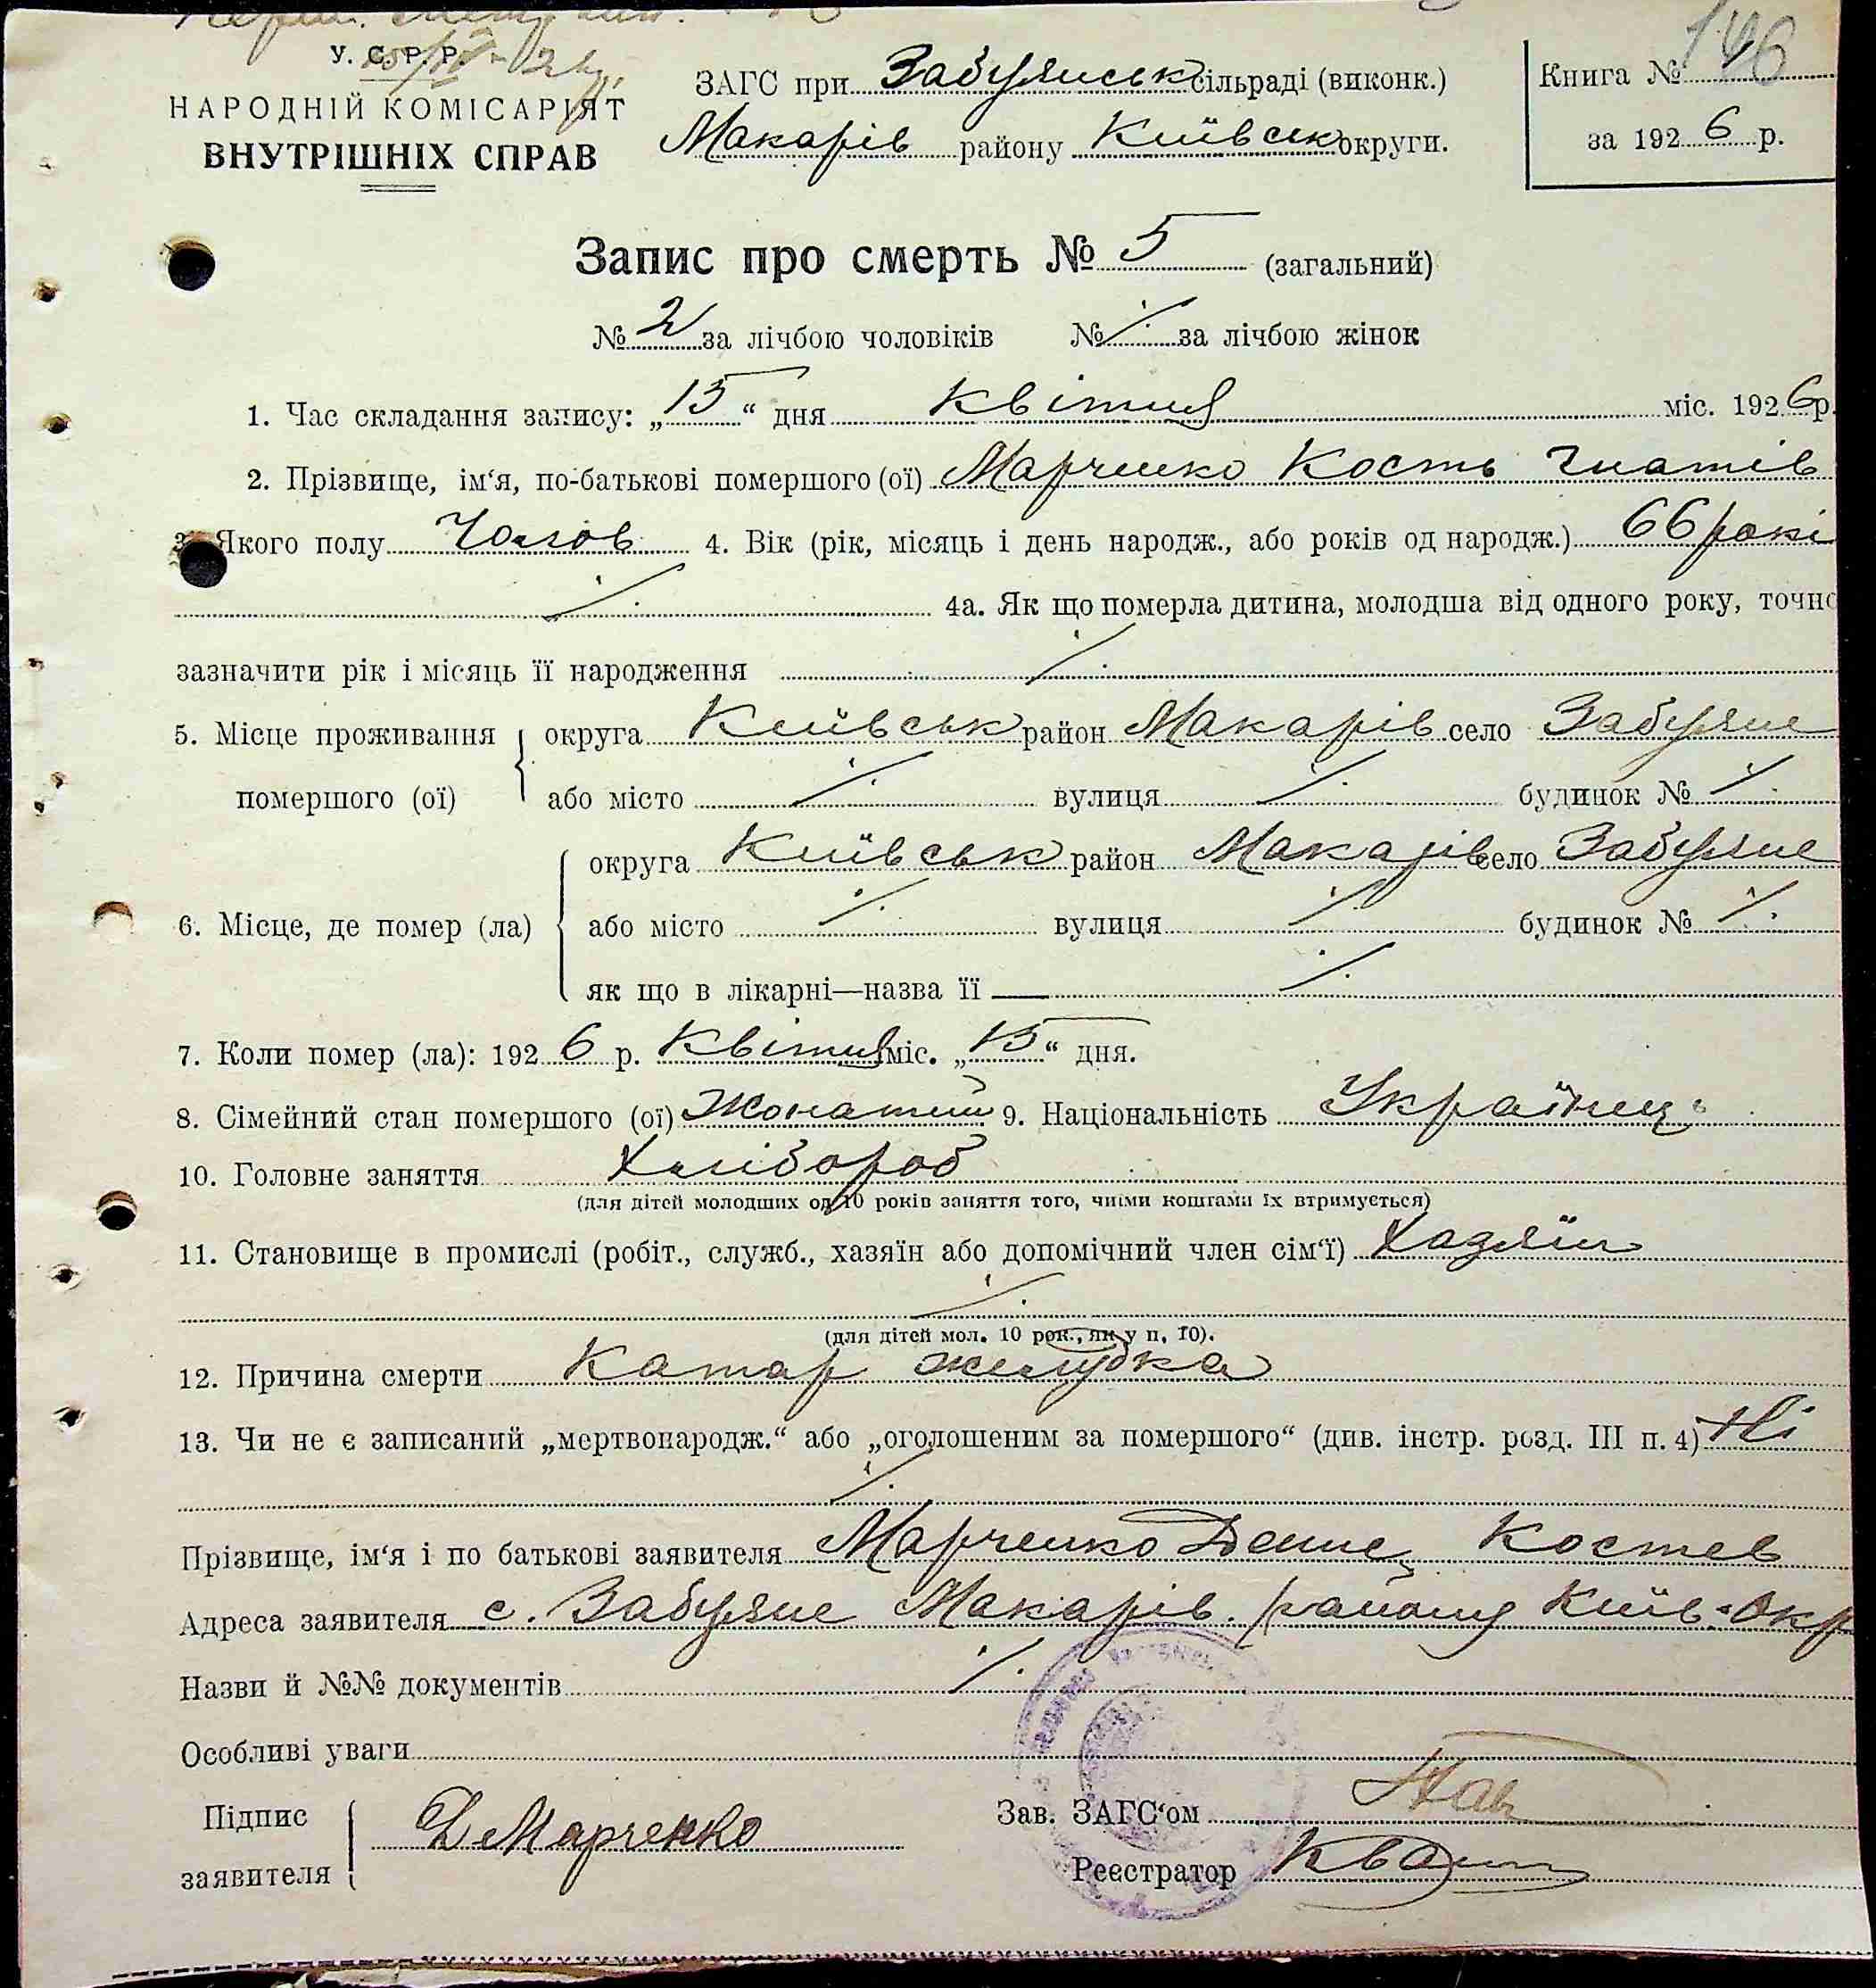 У. С. Р. Р.
НАРОДНІЙ КОМІСАРІЯТ
ВНУТРІШНІХ СПРАВ
ЗАГС при Забуянськ сільраді (виконк.)
Макарів району Київськ округи.
Книга № 146
за 1926 р.
Запис про смерть № 5 (загальний)
№ 2 за лічбою чоловіків № ⁒ за лічбою жінок
1. Час складання запису: „15“ дня Квітня міс. 1926 р.
2. Прізвище, ім‘я, по-батькові помершого (ої) Марченко Кость Гнатів
3. Якого полу Чолов 4. Вік (рік, місяць і день народж., або років од народж.) 66 рокі
⁒ 4а. Як що померла дитина, молодша від одного року, точно
зазначити рік і місяць її народження ⁒
5. Місце проживання помершого (ої) округа Київськ район Макарів село Забуяне
або місто ⁒ вулиця ⁒ будинок № ⁒
6. Місце, де помер (ла) округа Київськ район Макарів село Забуяне
або місто ⁒ вулиця ⁒ будинок № ⁒
як що в лікарні—назва її ⁒
7. Коли помер (ла): 1926 р. Квітня міс. „15“ дня.
8. Сімейний стан помершого (ої) Жонатий 9. Національність Українець
10. Головне заняття Хлібороб
(для дітей молодших од 10 років заняття того, чиїми коштами їх втримується)
11. Становище в промислі (робіт., служб., хазяїн або допомічний член сім‘ї) Хазяїн
⁒
(для дітей мол. 10 рок., як у п. 10).
12. Причина смерти Катар желудка
13. Чи не є записаний „мертвонародж.“ або „оголошеним за помершого“ (див. інстр. розд. III п. 4) Ні
⁒
Прізвище, ім‘я і по батькові заявителя Марченко Денис Костев
Адреса заявителя с. Забуяне Макарів. району Київ. Окр
Назви й №№ документів ⁒
Особливі уваги
Підпис заявителя Д Марченко
Зав. ЗАГС‘ом
Реєстратор